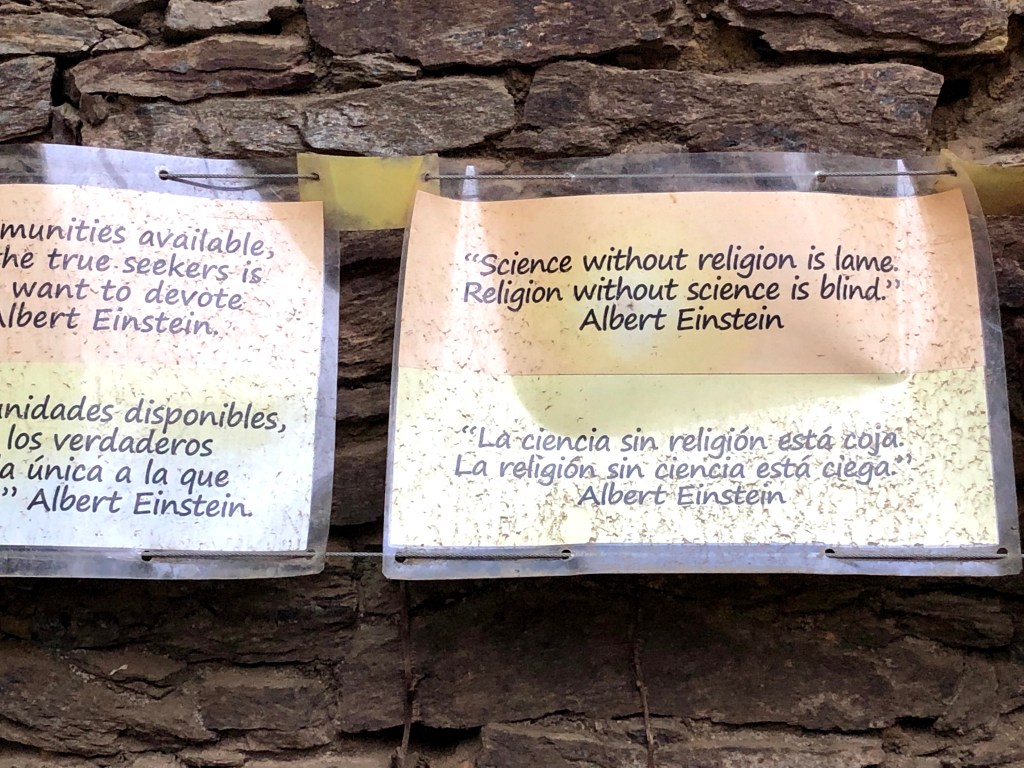 munities available,
the true seekers is
want to devote
Albert Einstein.
unidades disponibles,
los verdaderos
a única a la que
” Albert Einstein.
“Science without religion is lame.
Religion without science is blind.”
Albert Einstein
“La ciencia sin religión está coja.
La religión sin ciencia está ciega.”
Albert Einstein